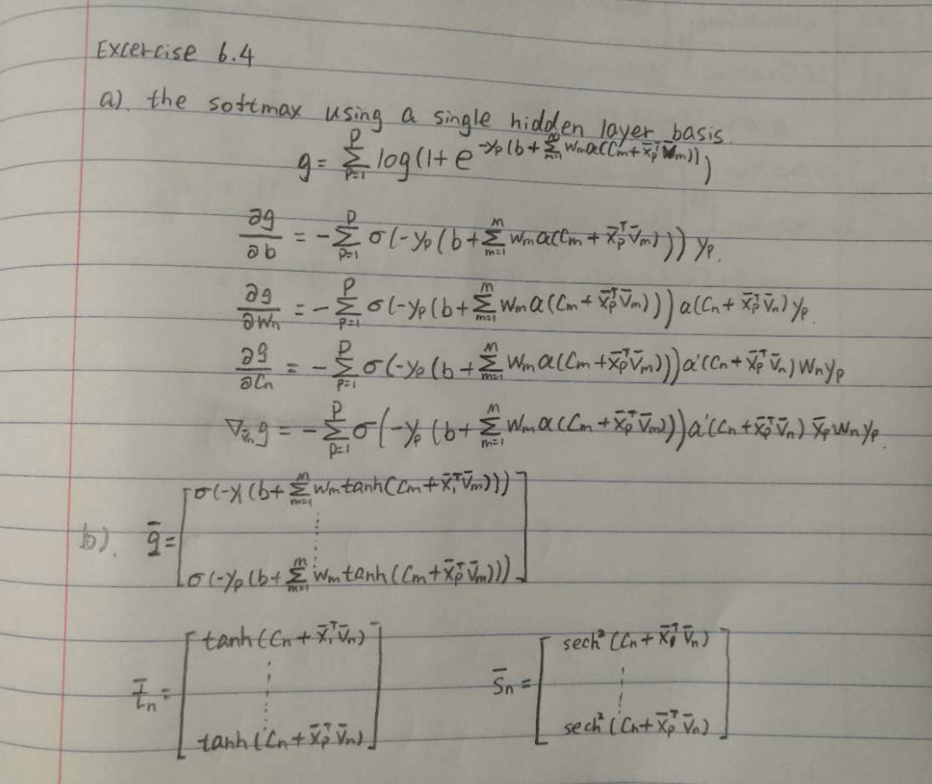 Excercise 6.4
a). the softmax using a single hidden layer basis.
g = ∑_{p=1}^{P} log(1+e^{-y_p(b+∑_{m=1}^{m} w_m a(c_m+x̄_p^T v̄_m))})
∂g/∂b = -∑_{p=1}^{P} σ(-y_p(b+∑_{m=1}^{m} w_m a(c_m+x̄_p^T v̄_m))) y_p.
∂g/∂w_n = -∑_{p=1}^{P} σ(-y_p(b+∑_{m=1}^{m} w_m a(c_m+x̄_p^T v̄_m))) a(c_n+x̄_p^T v̄_n) y_p.
∂g/∂c_n = -∑_{p=1}^{P} σ(-y_p(b+∑_{m=1}^{m} w_m a(c_m+x̄_p^T v̄_m))) a'(c_n+x̄_p^T v̄_n) w_n y_p
∇_{v̄_n} g = -∑_{p=1}^{P} σ(-y_p(b+∑_{m=1}^{m} w_m a(c_m+x̄_p^T v̄_m))) a'(c_n+x̄_p^T v̄_n) x̄_p w_n y_p.
σ(-y_1(b+∑_{m=1}^{m} w_m tanh(c_m+x̄_1^T v̄_m)))
b). q̄ =
σ(-y_p(b+∑_{m=1}^{m} w_m tanh(c_m+x̄_p^T v̄_m)))
tanh(c_n+x̄_1^T v̄_n) sech²(c_n+x̄_1^T v̄_n)
t̄_n = s̄_n =
tanh(c_n+x̄_p^T v̄_n) sech²(c_n+x̄_p^T v̄_n)